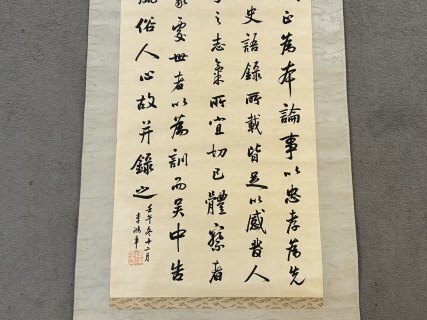 正为本論事以忠孝為先
史語錄所載皆足以感發人
之志氣所宜切己體察者
家處世者以為訓而吴中告
俗人心故并錄之
壬午冬十二月
李鴻章